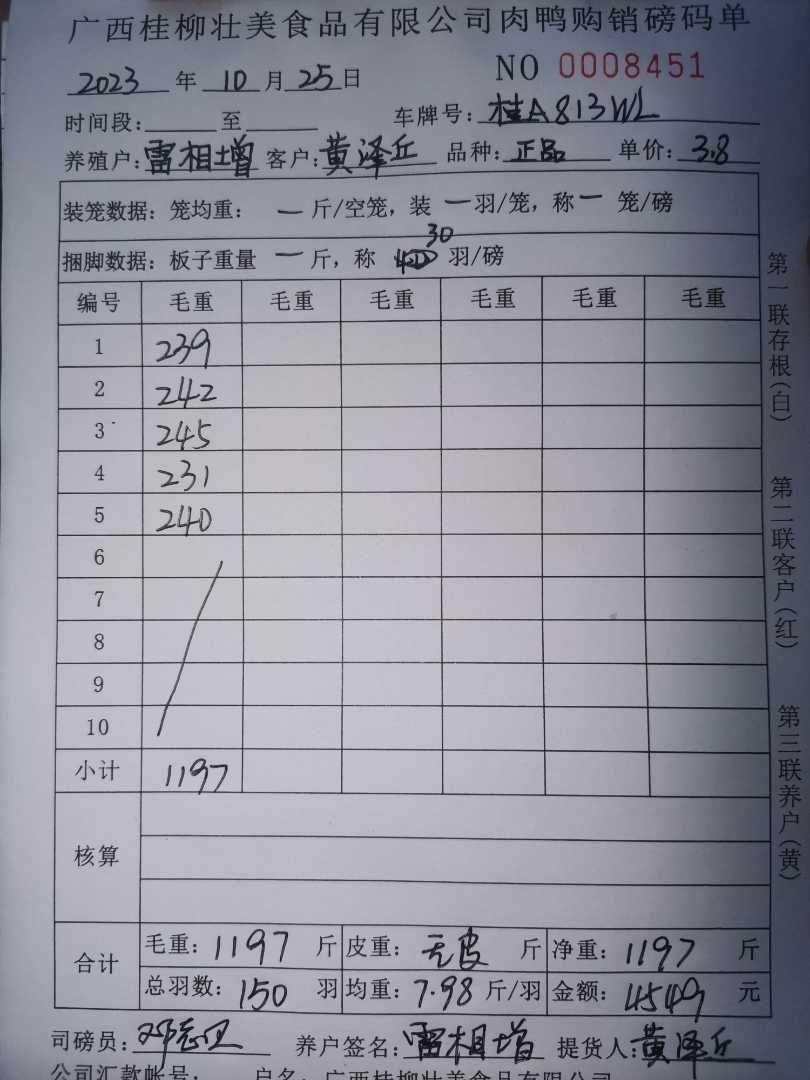 广西桂柳壮美食品有限公司肉鸭购销磅码单
2023 年 10 月 25 日 NO 0008451
时间段: 至 车牌号: 桂A813WL
养殖户: 雷相增 客户: 黄泽丘 品种: 正品 单价: 3.8
装笼数据: 笼均重: 一 斤/空笼, 装 一 羽/笼, 称 一 笼/磅
捆脚数据: 板子重量 一 斤, 称 30 羽/磅
编号 毛重 毛重 毛重 毛重 毛重 毛重
1 239
2 242
3 245
4 231
5 240
6
7
8
9
10
小计 1197
核算
合计 毛重: 1197 斤 皮重: 无皮 斤 净重: 1197 斤
总羽数: 150 羽 均重: 7.98 斤/羽 金额: 4549 元
司磅员: 邓志 养户签名: 雷相增 提货人: 黄泽丘
公司汇款帐号: 户名: 广西桂柳壮美食品有限公司
第一联存根(白)
第二联客户(红)
第三联养户(黄)